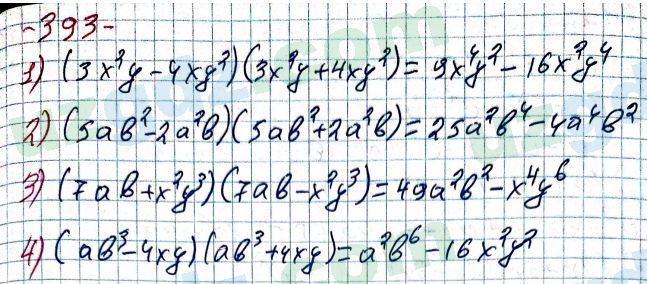 -393-
1) (3x²y-4xy²)(3x²y+4xy²)=9x⁴y²-16x²y⁴
2) (5ab²-2a²b)(5ab²+2a²b)=25a²b⁴-4a⁴b²
3) (7ab+x²y³)(7ab-x²y³)=49a²b²-x⁴y⁶
4) (ab³-4xy)(ab³+4xy)=a²b⁶-16x²y²